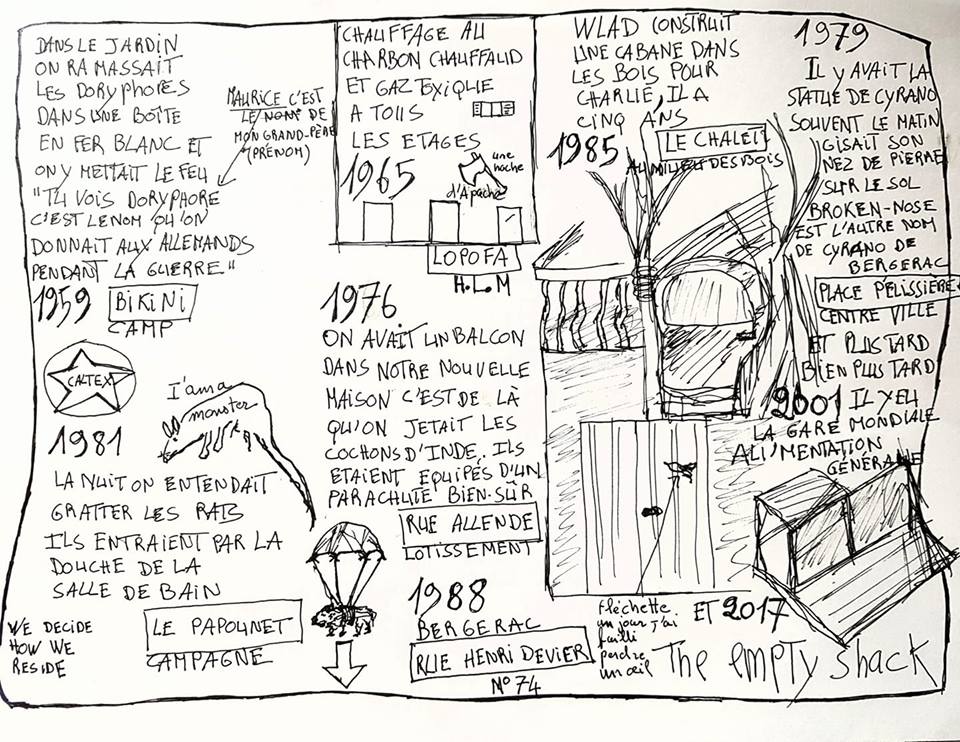 DANS LE JARDIN
ON RAMASSAIT
LES DORYPHORES
DANS UNE BOÎTE
EN FER BLANC ET
ON Y METTAIT LE FEU
"TU VOIS DORYPHORE
C'EST LE NOM QU'ON
DONNAIT AUX ALLEMANDS
PENDANT LA GUERRE"
1959 BIKINI
CAMP
MAURICE C'EST
LE NOM DE
MON GRAND-PÈRE
(PRÉNOM)
CALTEX
1981
I'am a
monster
LA NUIT ON ENTENDAIT
GRATTER LES RATS
ILS ENTRAIENT PAR LA
DOUCHE DE LA
SALLE DE BAIN
LE PAPOUNET
CAMPAGNE
WE DECIDE
HOW WE
RESIDE
CHAUFFAGE AU
CHARBON CHAUFFAUD
ET GAZ TOXIQUE
A TOUS
LES ETAGES
1965
une hache
d'Apache
LOPOFA
H.L.M
1976
ON AVAIT UN BALCON
DANS NOTRE NOUVELLE
MAISON C'EST DE LÀ
QU'ON JETAIT LES
COCHONS D'INDE. ILS
ETAIENT EQUIPÉS D'UN
PARACHUTE BIEN-SÛR
RUE ALLENDE
LOTISSEMENT
1988
BERGERAC
RUE HENRI DEVIER
N°74
WLAD CONSTRUIT
UNE CABANE DANS
LES BOIS POUR
CHARLIE, IL A
CINQ ANS
1985 LE CHALET
AU MILIEU DES BOIS
fléchette.
un jour j'ai
failli
perdre
un œil
1979
IL Y AVAIT LA
STATUE DE CYRANO
SOUVENT LE MATIN
GISAIT SON
NEZ DE PIERRE
SUR LE SOL
BROKEN-NOSE
EST L'AUTRE NOM
DE CYRANO DE
BERGERAC
PLACE PELISSIERE
CENTRE VILLE
ET PLUS TARD
BIEN PLUS TARD
2001 IL Y EU
LA GARE MONDIALE
ALIMENTATION
GÉNÉRALE
ET 2017
The empty shack